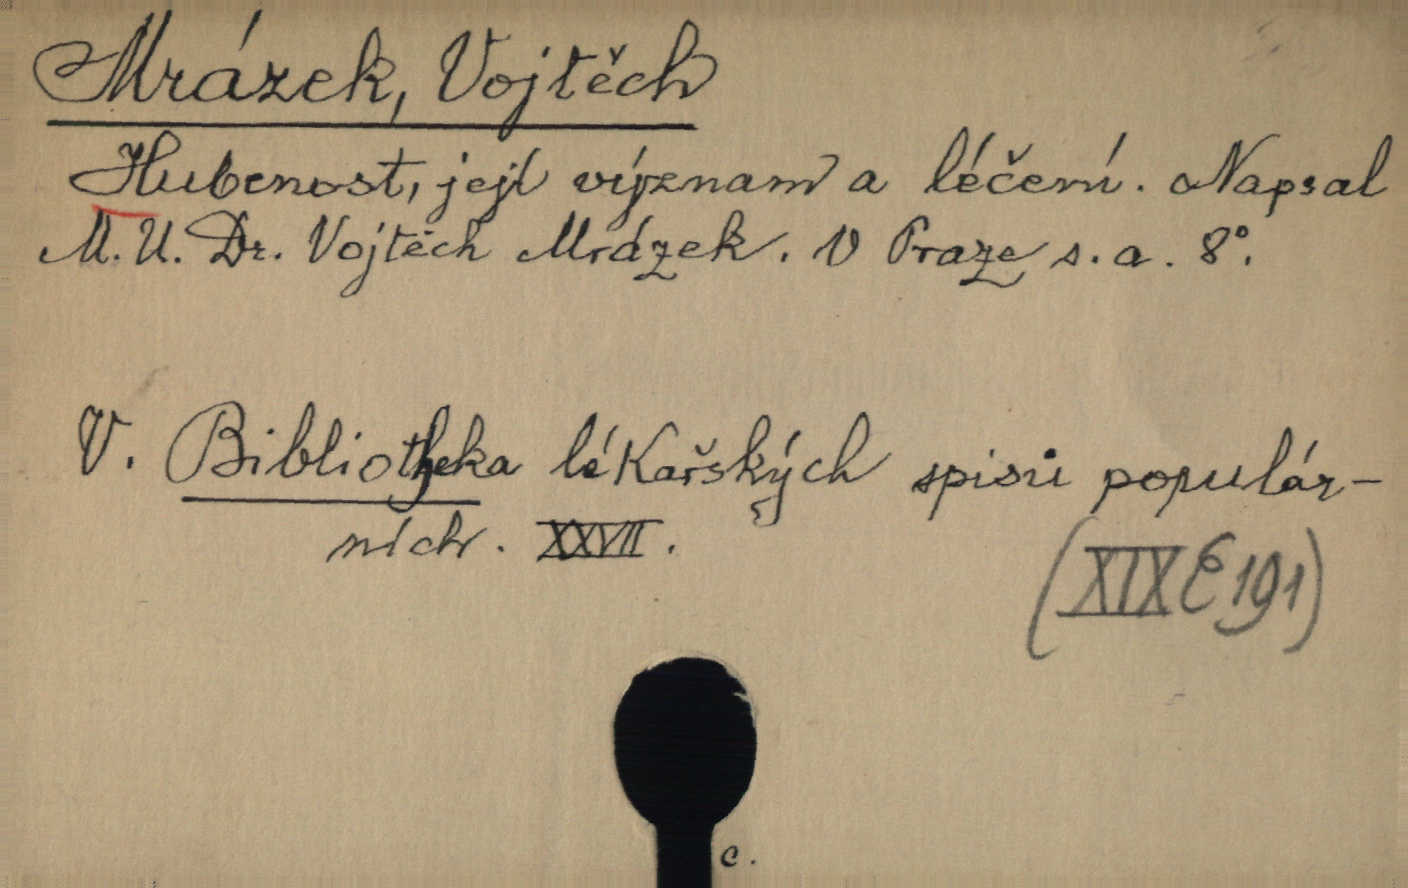 Mrázek, Vojtěch
Hubenost, její význam a léčení. Napsal
M. U. Dr. Vojtěch Mrázek. V Praze s. a. 8°.
V. Bibliotheka lékařských spisů populár-
ních. XXVII.
(XIX E 191)
c.